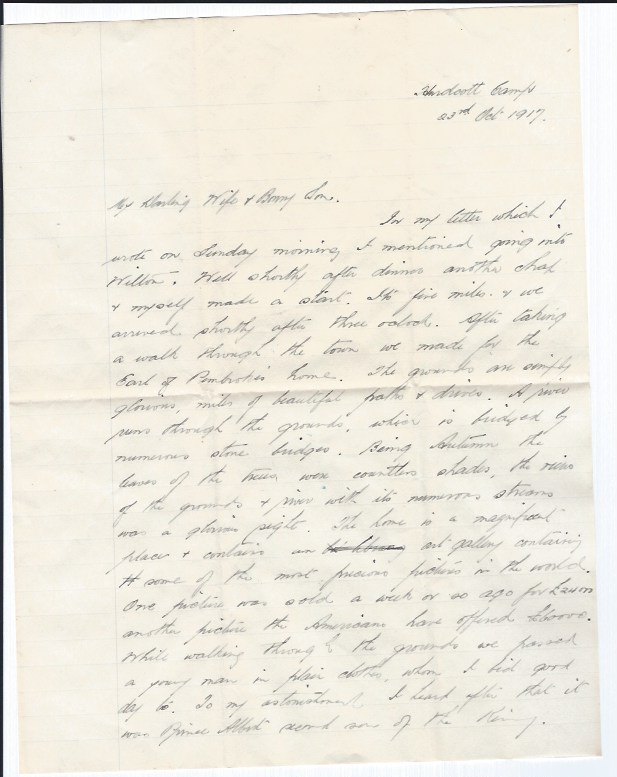 Hurdcott Camp
23rd Oct 1917.
My Darling Wife & Bonny Son.
In my letter which I
wrote on Sunday morning I mentioned going into
Wilton. Well shortly after dinner another chap
& myself made a start. Its five miles. & we
arrived shortly after three oclock. After taking
a walk through the town we made for the
Earl of Pembroke's home. The grounds are simply
glorious, miles of beautiful paths & drives. A river
runs through the grounds, which is bridged by
numerous stone bridges. Being Autumn the
leaves of the trees were countless shades, the views
of the grounds & river with its numerous streams
was a glorious sight. The home is a magnificent
place & contains an art gallery containing
some of the most precious pictures in the world.
One picture was sold a week or so ago for
another picture the Americans have offered
While walking through the grounds we passed
a young man in plain clothes, whom I bid good
day to. To my astonishment I heard after that it
was Prince Albert second son of the King.